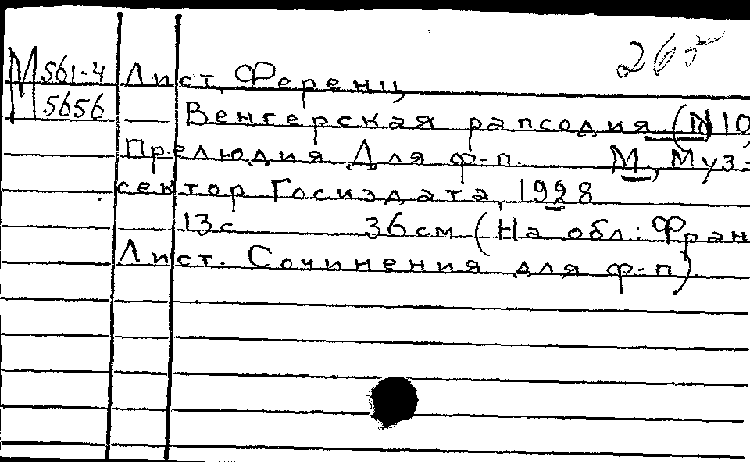 26
М 561-4 Лист, Ференц
5656 Венгерская рапсодия (N 10)
Прелюдия Для ф-п. М, Муз-
сектор Госиздата, 1928
13с 36см (На обл: Фран
Лист. Сочинения для ф-п)